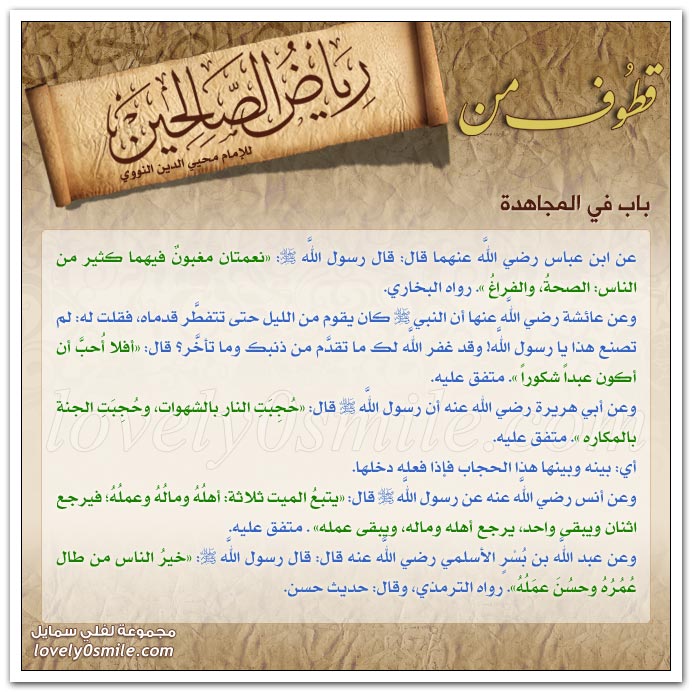 قطوف من
رياض الصالحين
للإمام محيي الدين النووي
باب في المجاهدة
عن ابن عباس رضي اللَّه عنهما قال: قال رسول اللَّه ﷺ: «نعمتان مغبونٌ فيهما كثير من
الناس: الصحةُ، والفراغُ ». رواه البخاري.
وعن عائشة رضي اللَّه عنها أن النبي ﷺ كان يقوم من الليل حتى تتفطَّر قدماه، فقلت له: لم
تصنع هذا يا رسول اللَّه! وقد غفر اللَّه لك ما تقدَّم من ذنبك وما تأخَّر؟ قال: «أفلا أُحبَّ أن
أكون عبداً شكوراً ». متفق عليه.
وعن أبي هريرة رضي اللَّه عنه أن رسول اللَّه ﷺ قال: «حُجِبَت النار بالشهوات، وحُجِبَت الجنة
بالمكاره ». متفق عليه.
أي: بينه وبينها هذا الحجاب فإذا فعله دخلها.
وعن أنس رضي اللَّه عنه عن رسول اللَّه ﷺ قال: «يتبعُ الميت ثلاثة: أهلُهُ ومالُهُ وعملُهُ؛ فيرجع
اثنان ويبقى واحد، يرجع أهله وماله، ويبقى عمله» . متفق عليه.
وعن عبد اللَّه بن بُسْرٍ الأسلمي رضي اللَّه عنه قال: قال رسول اللَّه ﷺ: «خيرُ الناس من طال
عُمُرُهُ وحسُنَ عمَلُهُ». رواه الترمذي، وقال: حديث حسن.
lovely0smile.com
مجموعة لفلي سمايل
lovely0smile.com